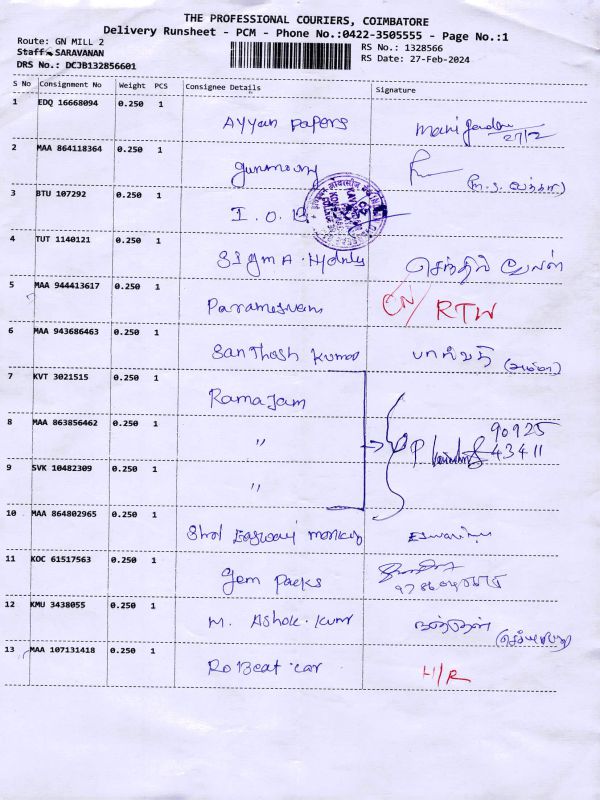 THE PROFESSIONAL COURIERS, COIMBATORE
Delivery Runsheet - PCM - Phone No.:0422-3505555 - Page No.:1
Route: GN MILL 2
Staff: SARAVANAN
DRS No.: DCJB132856601
RS No.: 1328566
RS Date: 27-Feb-2024
S No Consignment No Weight PCS Consignee Details Signature
1 EDQ 16668094 0.250 1 Ayyan papers 27/2
2 MAA 864118364 0.250 1
3 BTU 107292 0.250 1 I.O.B.
4 TUT 1140121 0.250 1 செந்தில்
5 MAA 944413617 0.250 1 Parameswari CN/ RTW
6 MAA 943686463 0.250 1 Santhosh Kumar
7 KVT 3021515 0.250 1 Ramajam
8 MAA 863856462 0.250 1 " P 90925
43411
9 SVK 10482309 0.250 1 "
10 MAA 864802965 0.250 1
11 KOC 61517563 0.250 1 Gem packs
12 KMU 3438055 0.250 1 M. Ashok. Kumr
13 MAA 107131418 0.250 1 Ro Beat car H/R